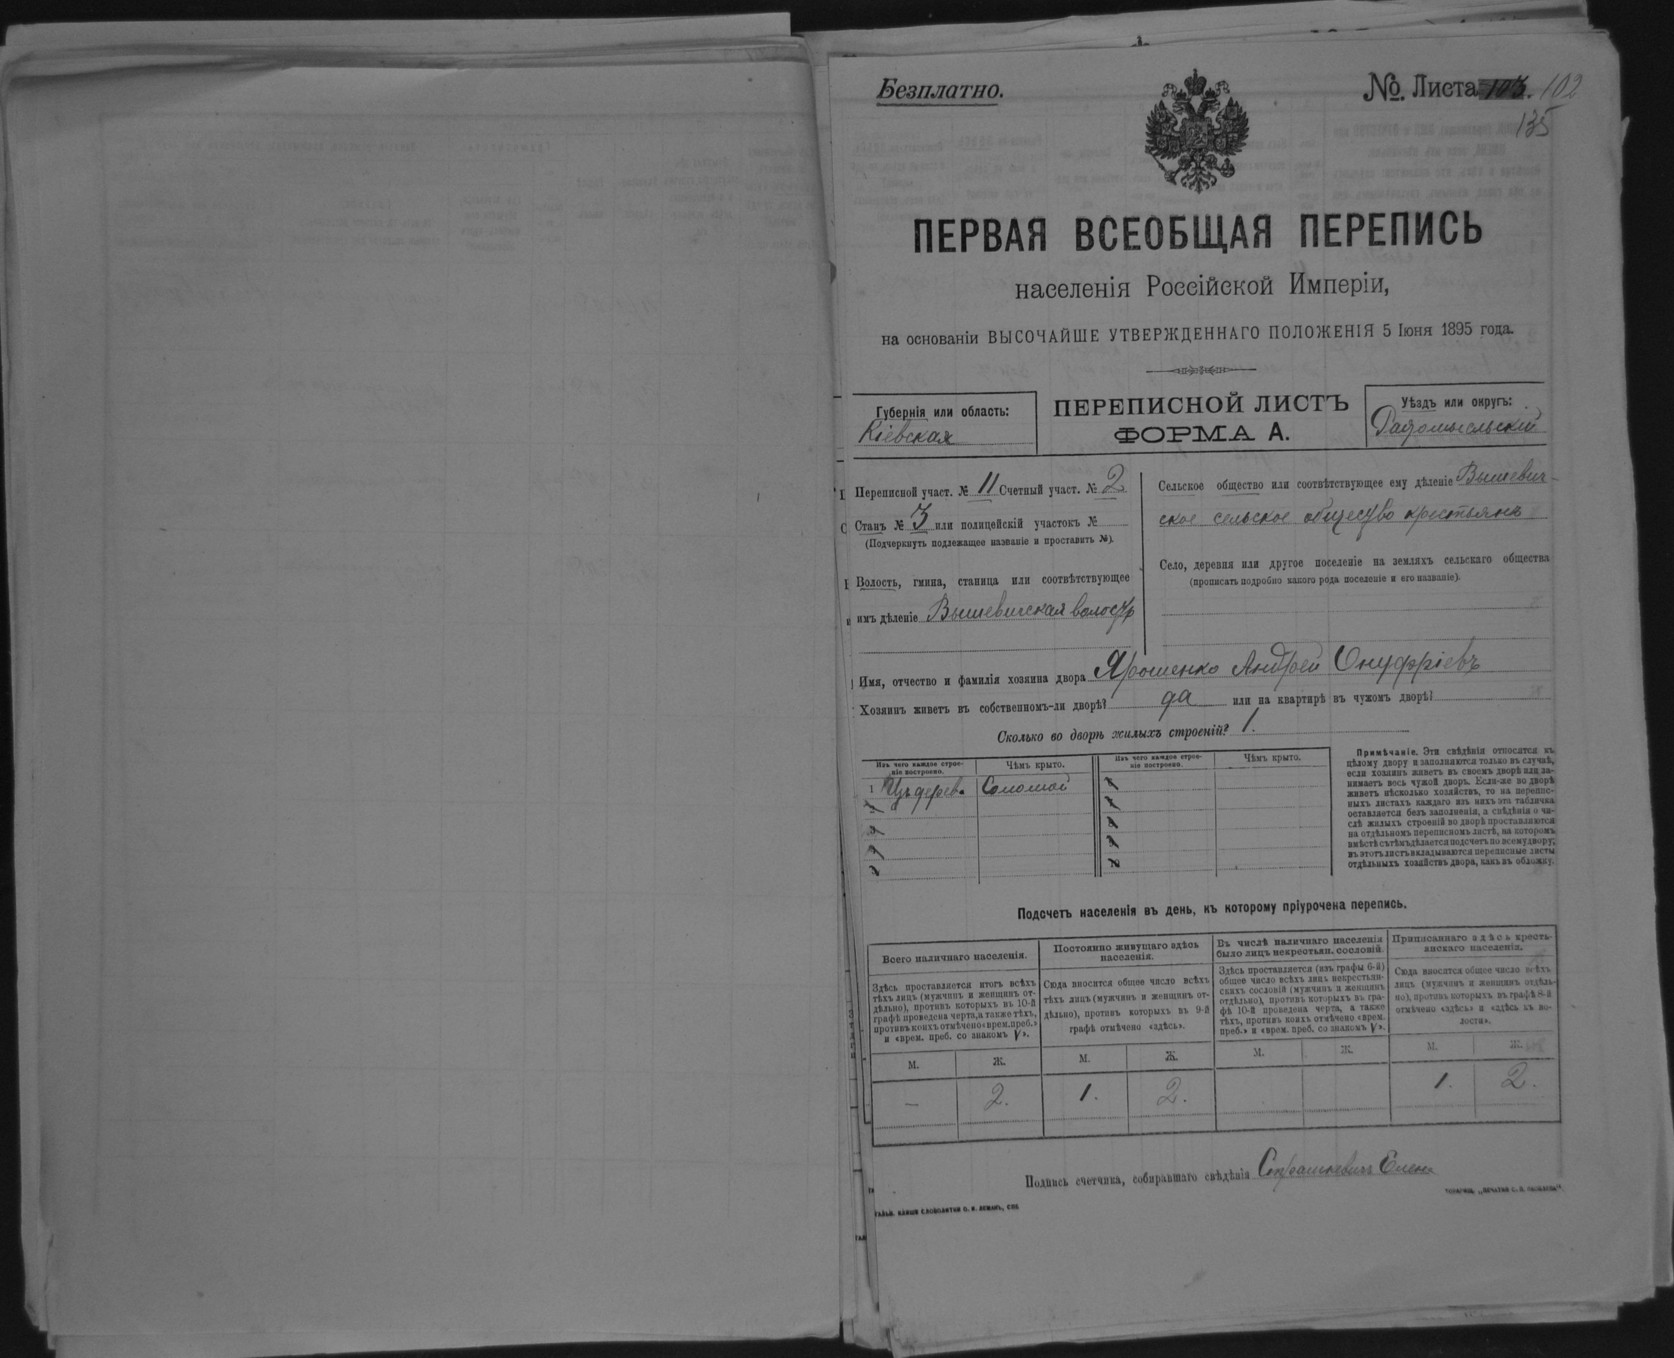 Безплатно.
№. Листа 103. 102
135
ПЕРВАЯ ВСЕОБЩАЯ ПЕРЕПИСЬ
населенія Россійской Имперіи,
на основаніи ВЫСОЧАЙШЕ УТВЕРЖДЕННАГО ПОЛОЖЕНІЯ 5 Іюня 1895 года.
Губернія или область:
Кіевская
ПЕРЕПИСНОЙ ЛИСТЪ
ФОРМА А.
Уѣздъ или округъ:
Радомысльскій
Переписной участ. № 11 Счетный участ. № 2
Станъ № 3 или полицейскій участокъ №
(Подчеркнуть подлежащее названіе и проставить №).
Волость, гмина, станица или соотвѣтствующее
имъ дѣленіе Вышевичская волость
Сельское общество или соотвѣтствующее ему дѣленіе Вышевич-
ское сельское общество крестьянъ
Село, деревня или другое поселеніе на земляхъ сельскаго общества
(прописать подробно какого рода поселеніе и его названіе).
Имя, отчество и фамилія хозяина двора Ярошенко Андрей Онуфріевъ
Хозяинъ живетъ въ собственномъ-ли дворѣ? да или на квартирѣ въ чужомъ дворѣ?
Сколько во дворѣ жилыхъ строеній? 1.
Изъ чего каждое строе-
ніе построено.
Чѣмъ крыто.
Изъ чего каждое строе-
ніе построено.
Чѣмъ крыто.
1 Изъ дерев. Соломой
Примѣчаніе. Эти свѣдѣнія относятся къ
цѣлому двору и заполняются только въ случаѣ,
если хозяинъ живетъ въ своемъ дворѣ или за-
нимаетъ весь чужой дворъ. Если-же во дворѣ
живетъ нѣсколько хозяйствъ, то на перепис-
ныхъ листахъ каждаго изъ нихъ эта табличка
оставляется безъ заполненія, а свѣдѣнія о чи-
слѣ жилыхъ строеній во дворѣ проставляются
на отдѣльномъ переписномъ листѣ, на которомъ
вмѣстѣ съ тѣмъ дѣлается подсчетъ по всему двору;
въ этотъ листъ вкладываются переписные листы
отдѣльныхъ хозяйствъ двора, какъ въ обложку.
Подсчетъ населенія въ день, къ которому пріурочена перепись.
Всего наличнаго населенія.
Здѣсь проставляется итогъ всѣхъ
тѣхъ лицъ (мужчинъ и женщинъ от-
дѣльно), противъ которыхъ въ 10-й
графѣ проведена черта, а также тѣхъ,
противъ коихъ отмѣчено «врем. преб.»
и «врем. преб. со знакомъ V».
Постоянно живущаго здѣсь
населенія.
Сюда вносится общее число всѣхъ
тѣхъ лицъ (мужчинъ и женщинъ от-
дѣльно), противъ которыхъ въ 9-й
графѣ отмѣчено «здѣсь».
Въ числѣ наличнаго населенія
было лицъ некрестьян. сословій.
Здѣсь проставляется (изъ графы 6-й)
общее число всѣхъ лицъ некрестьян-
скихъ сословій (мужчинъ и женщинъ
отдѣльно), противъ которыхъ въ гра-
фѣ 10-й проведена черта, а также
тѣхъ, противъ коихъ отмѣчено «врем.
преб.» и «врем. преб. со знакомъ V».
Приписаннаго здѣсь кресть-
янскаго населенія.
Сюда вносится общее число всѣхъ
лицъ (мужчинъ и женщинъ отдѣль-
но), противъ которыхъ въ графѣ 8-й
отмѣчено «здѣсь» и «здѣсь въ во-
лости».
М. Ж. М. Ж. М. Ж. М. Ж.
— 2. 1. 2. 1. 2.
Подпись счетчика, собиравшаго свѣдѣнія